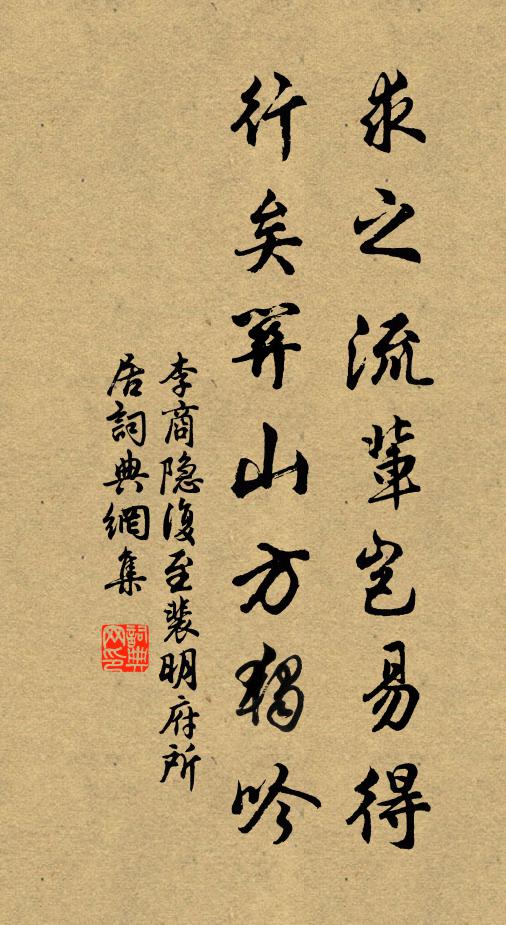 求之流輩岂易得
行矣關山方獨吟
李商隐復至裴明府所
居詞典網集
詞典
网印